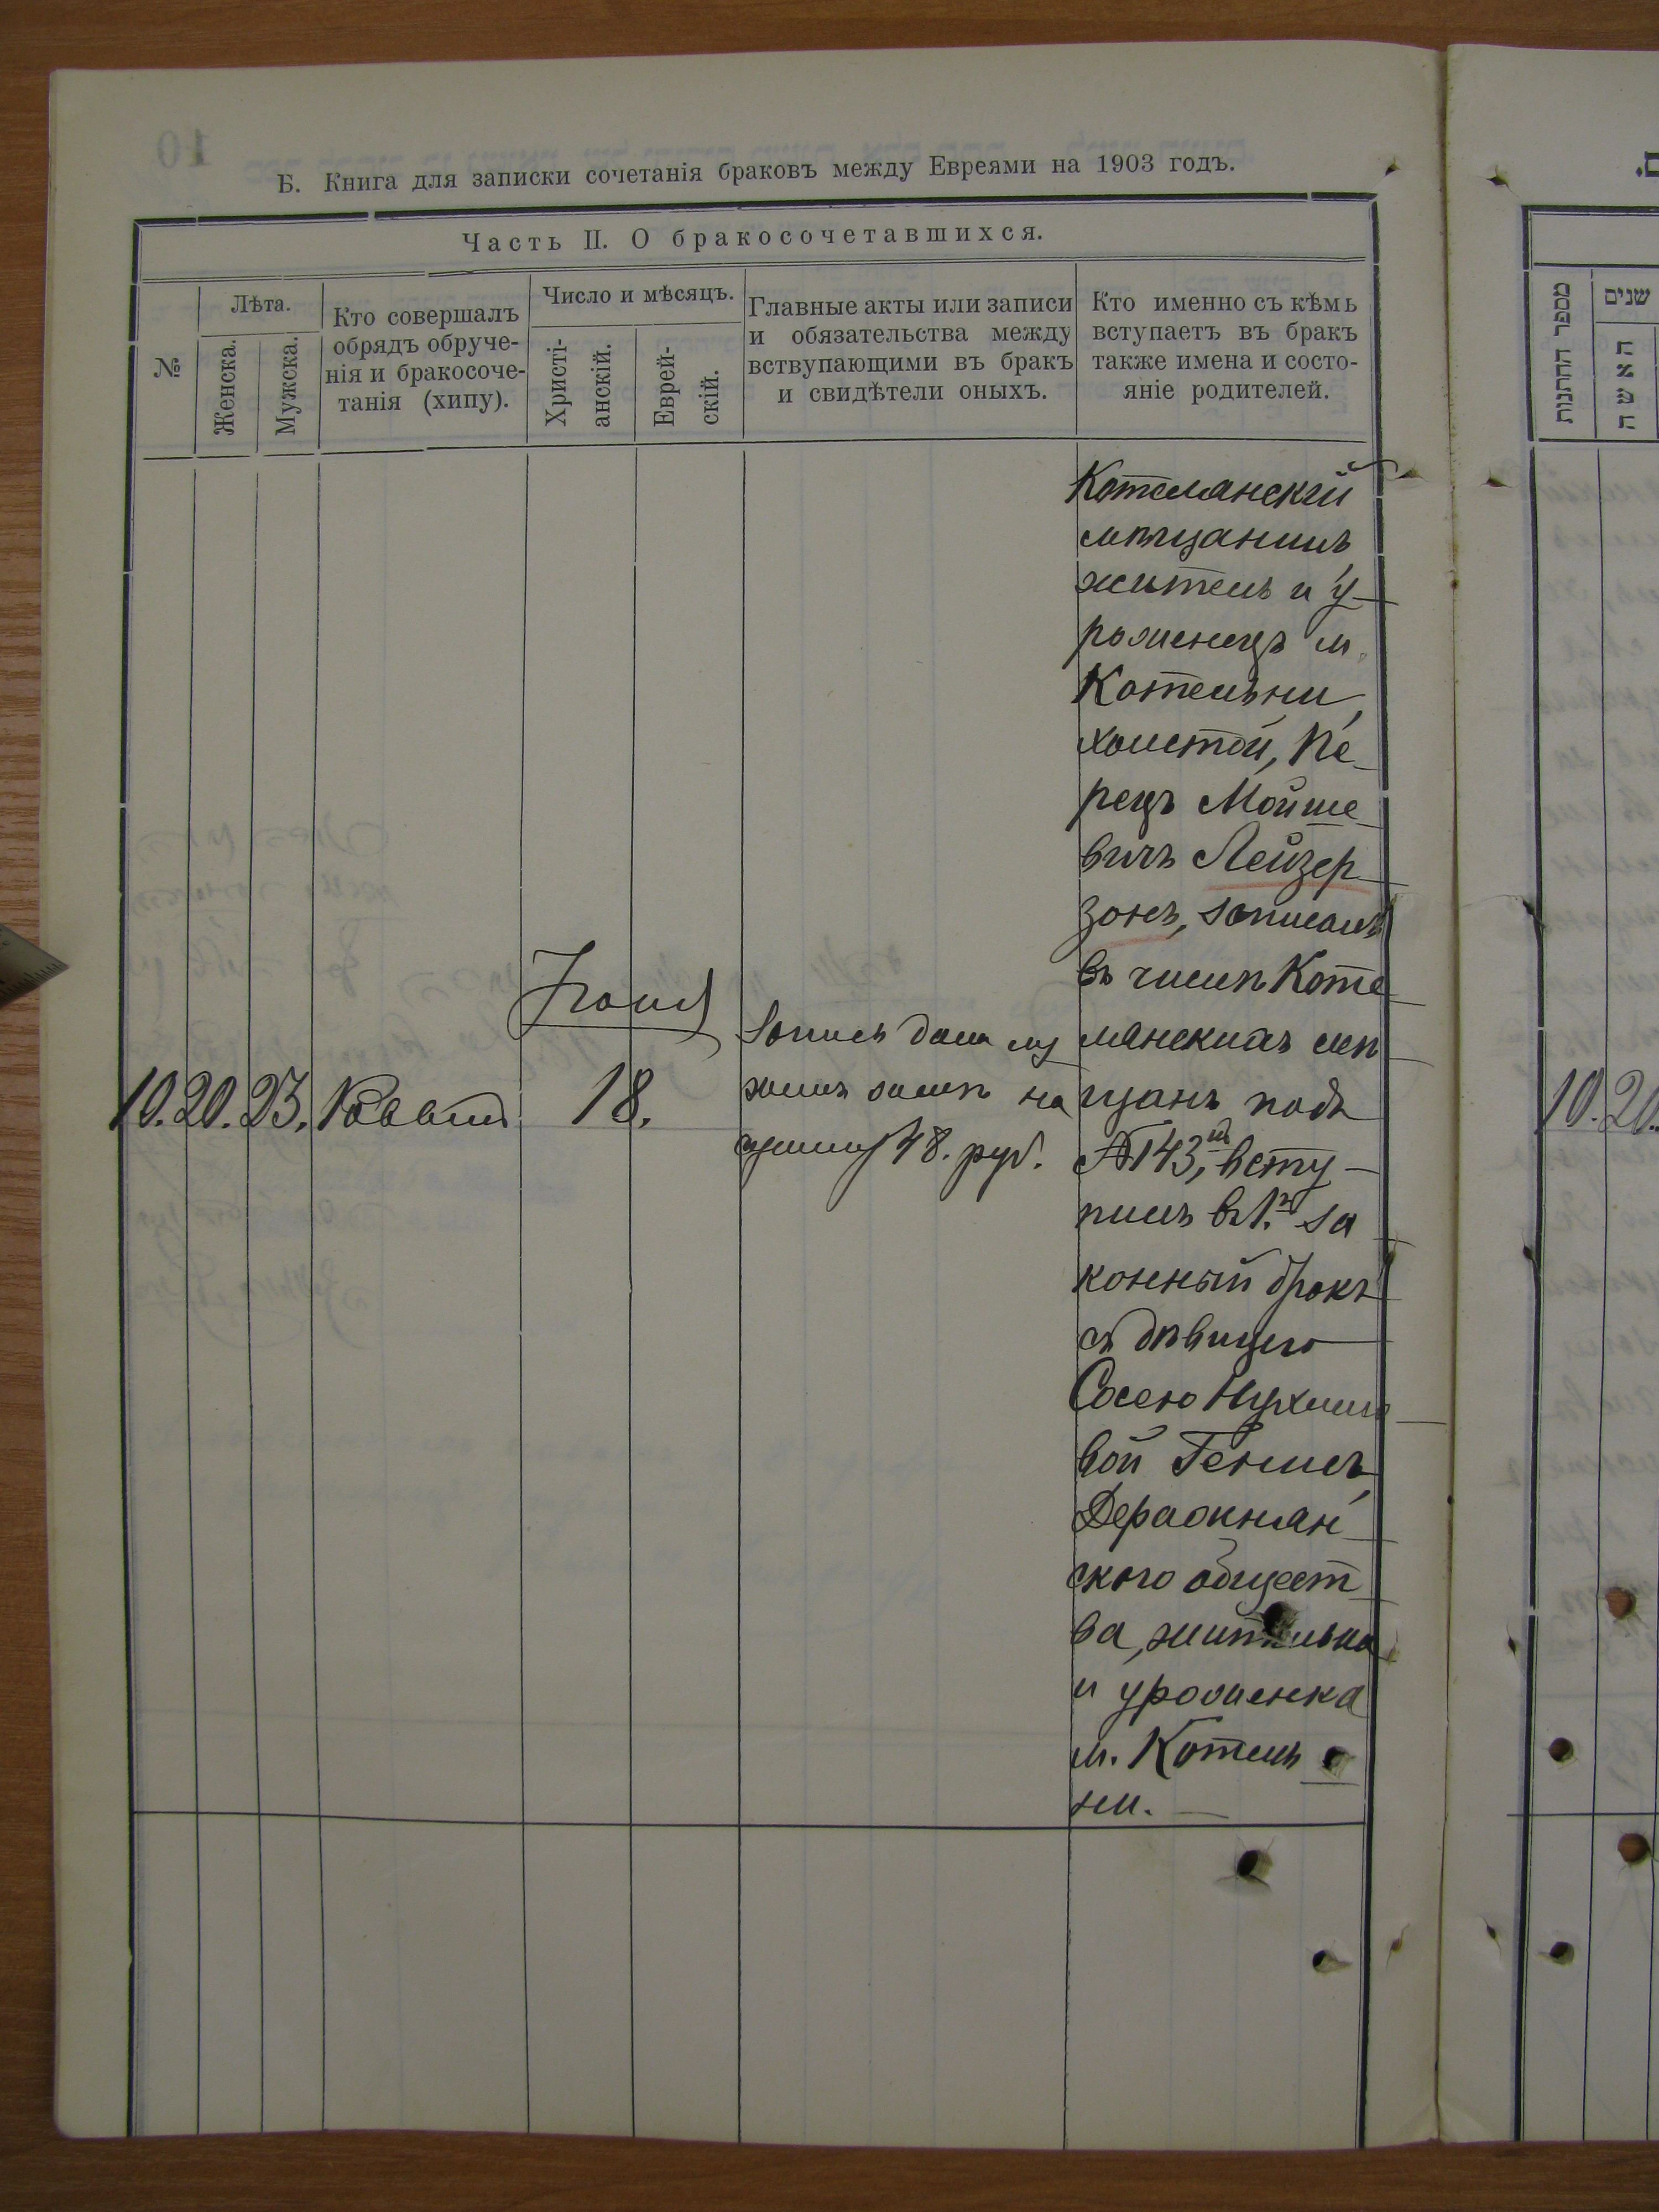 Б. Книга для записки сочетанія браковъ между Евреями на 1903 годъ.
Часть II. О бракосочетавшихся.
№
Лѣта.
Женска.
Мужска.
Кто совершалъ
обрядъ обруче-
нія и бракосоче-
танія (хипу).
Число и мѣсяцъ.
Христі-
анскій.
Еврей-
скій.
Главные акты или записи
и обязательства между
вствупающими въ бракъ
и свидѣтели оныхъ.
Кто именно съ кѣмъ
вступаетъ въ бракъ
также имена и состо-
яніе родителей.
10. 20. 23. Раввин
18.
Запись дана му
жемъ женѣ на
сумму 48. руб.
Котелянскій
мѣщанинъ
житель и у-
роженецъ м.
Котельни,
холстой, Пе-
рецъ Мойше-
вичъ Лейзер-
зонъ, записанъ
въ числѣ Коте-
лянскихъ мѣ-
щанъ подъ
№ 143, всту-
пилъ въ 1.й за
конный бракъ
съ дѣвицею
Сосею Нухимо-
вой
Деражнян-
ского общест-
ва, жителька
и уроженка
м. Котель-
ни.
מספר החתונות
שנים
האשה
10. 20.